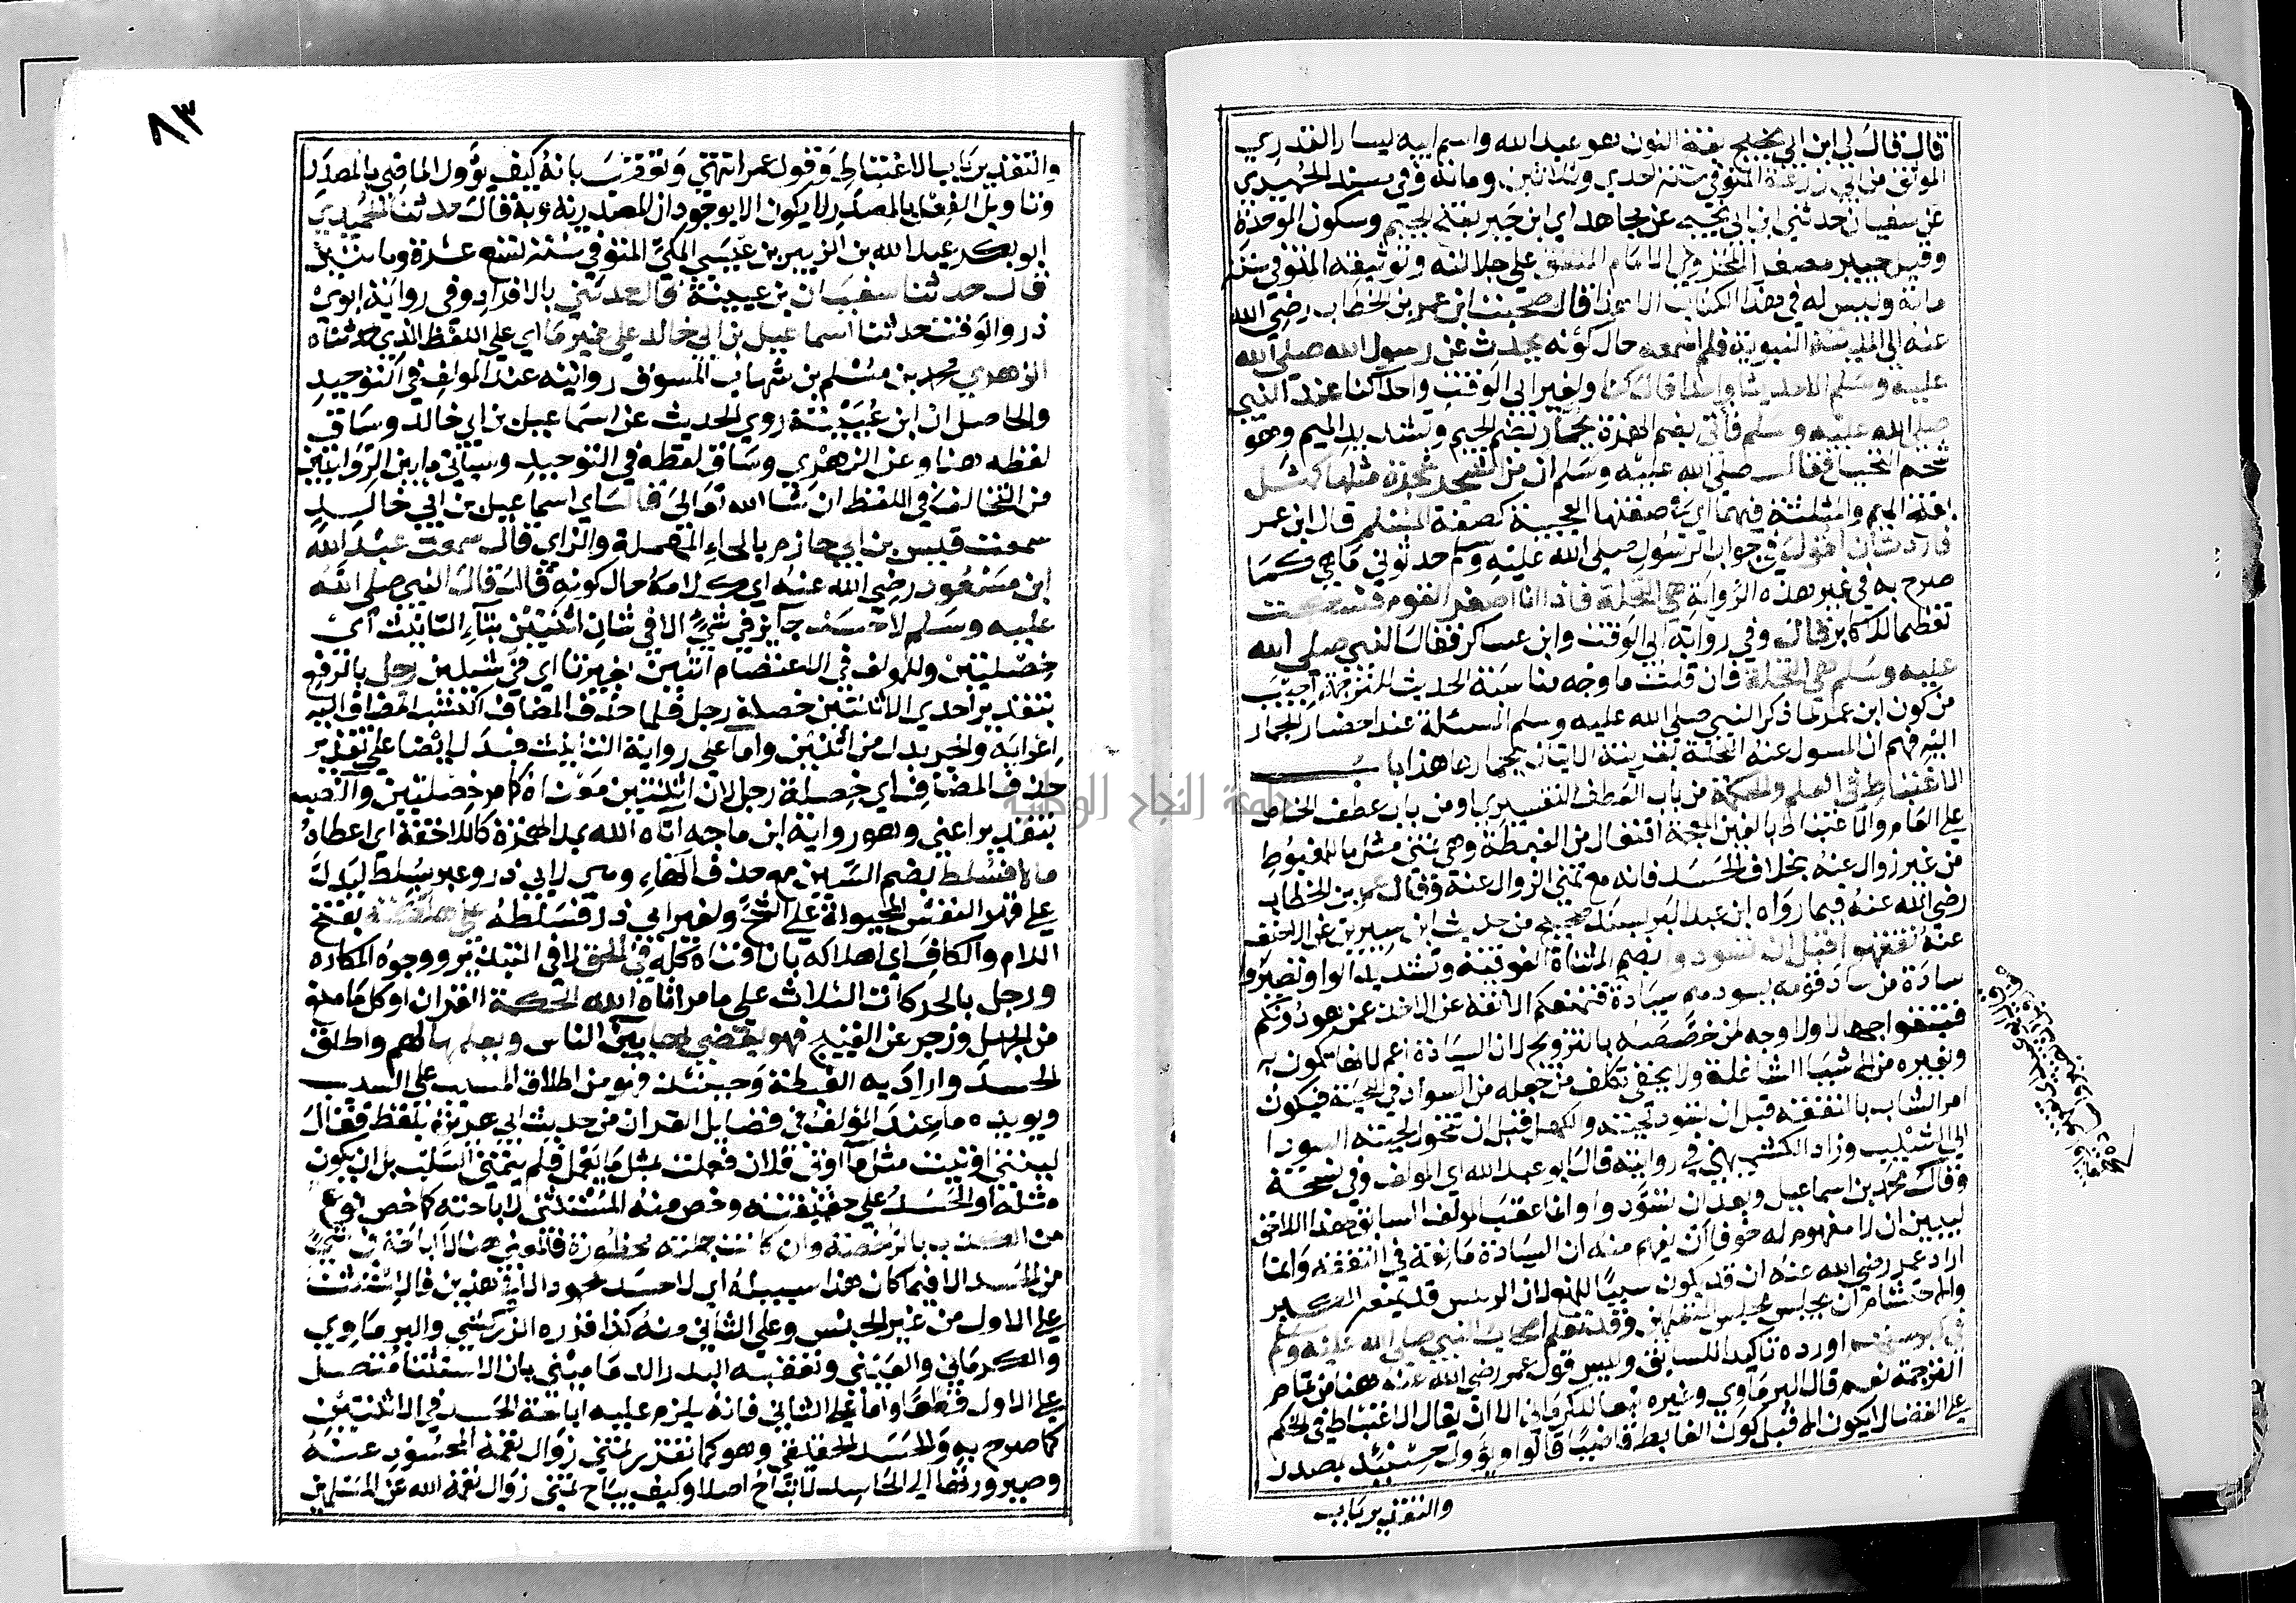 قال قال لي ابن ابي نجيح بفتح النون هو عبد الله واسم ابيه يسار القدري
الموثق من ابي زرعة المتوفي سنة احدي وثلاثين ومائة وفي مسند الحميدي
عن سفيان حدثني ابن ابي نجيح عن مجاهد اي ابن جبر بفتح الجيم وسكون الموحدة
وقيل جبير مصغر المخزومي الامام المتفق علي جلالته وتوثيقه المتوفي سنة
مائة وليس له في هذا الكتاب الا هذا قال صحبت ابن عمر بن الخطاب رضي الله
عنه الي المدينة النبوية فلم اسمعه حال كونه يحدث عن رسول الله صلي الله
عليه وسلم الا حديثا واحدا قال كنا ولغير ابي الوقت واحدا كنا عند النبي
صلي الله عليه وسلم فأتي بضم الهمزة بجمار بضم الجيم وتشديد الميم وهو
شحم النخيل فقال صلي الله عليه وسلم ان من الشجر شجرة مثلها كمثل
بفتح الميم والمثلثة فيهما اي صفتها العجيبة كصفة المسلم قال ابن عمر
فاردت ان اقول في جواب الرسول صلي الله عليه وسلم حدثوني ما هي كما
صرح به في غير هذه الرواية هي النخلة فاذا انا اصغر القوم فسكت
تعظيما للاكابر قال وفي رواية ابي الوقت وابن عساكر فقال النبي صلي الله
عليه وسلم هي النخلة فان قلت ما وجه مناسبة الحديث للترجمة اجيب
من كون ابن عمر لما ذكر النبي صلي الله عليه وسلم المسئلة عند احضار الجمار
اليه فهم ان المسول عنه النخلة بقرينة الاتيان بجمارها هذا باب
الاغتباط في العلم والحكمة من باب العطف التفسيري او من باب عطف الخاص
علي العام والاغتباط بالغين المعجمة افتعال من الغبطة وهي تمني مثل ما للمغبوط
من غير زوال عنه بخلاف الحسد فانه مع تمني الزوال عنه وقال عمر بن الخطاب
رضي الله عنه فيما رواه ابن عبد البر بسند صحيح من حديث ابن سيرين عن الاحنف
عنه تفقهوا قبل ان تسودوا بضم المثناة الفوقية وتشديد الواو تصيروا
سادة من ساد قومه يسودهم سيادة فتمنعكم الانفة عن الاخذ عمن هو دونكم
فتبقوا جهالا ولا وجه لمن خصصه بالتزويج لان السيادة اعم لانها تكون به
وبغيره من الاشيا الشاغلة ولا يخفي تكلف من جعله من السواد في اللحية فيكون
امر الشاب بالتفقه قبل ان تسود لحيته والكهل قبل ان تتحول لحيته السودا
الي الشيب وزاد الكشميهني في روايته قال ابو عبد الله اي المولف وفي نسخة
وقال محمد بن اسماعيل وبعد ان تسودوا وانما عقب المولف السابق بهذا اللاحق
ليبين ان لا مفهوم له خوفا ان يفهم منه ان السيادة مانعة في التفقه وانما
اراد عمر رضي الله عنه ان قد يكون سببا للمنع لان الرئيس قد يمنعه الكبر
والاحتشام ان يجلس مجلس المتفقهين وقد تعلم اصحاب النبي صلي الله عليه وسلم
في كبر سنهم اورده تاكيدا للسابق وليس قول عمر رضي الله عنه هنا من تمام
الترجمة نعم قال البرماوي وغيره تبعا للكرماني الا ان يقال الاغتباط في الحكم
علي القضا لا يكون الا قبل كون الغابط قاضيا قالوا ويؤول حينئذ بمصدر
والتقدير باب
٨٣
والتقدير باب الاغتباط وقول عمر انتهي وتعقب بانه كيف يؤول الماضي بالمصدر
وتاويل الفعل بالمصدر لا يكون الا بوجود ان المصدرية وبه قال حدثنا الحميدي
ابو بكر عبد الله بن الزبير بن عيسي المكي المتوفي سنة تسع عشرة ومايتين
قال حدثنا سفيان بن عيينة قال حدثني بالافراد وفي رواية ابوي
ذر والوقت حدثنا اسماعيل بن ابي خالد علي غير ما اي علي اللفظ الذي حدثناه
الزهري محمد بن مسلم بن شهاب المسوق روايته عند المولف في التوحيد
والحاصل ان ابن عيينة روي الحديث عن اسماعيل بن ابي خالد وساق
لفظه هنا وعن الزهري وساق لفظه في التوحيد وسياتي ما بين الروايتين
من التخالف في اللفظ ان شا الله تعالي قال اي اسماعيل بن ابي خالد
سمعت قيس بن ابي حازم بالحاء المهملة والزاي قال سمعت عبد الله
ابن مسعود رضي الله عنه اي كلامه حال كونه قال قال النبي صلي الله
عليه وسلم لا حسد جايز في شيء الا في شان اثنتين بتاء التانيث اي
خصلتين وللمولف في الاعتصام اثنين بغير تا اي في شيئين رجل بالرفع
بتقدير احدي الاثنتين خصلة رجل فلما حذف المضاف اكتسب المضاف اليه
اعرابه والجر بدل من اثنين واما علي رواية التانيث فبدل ايضا علي تقدير
حذف المضاف اي خصلة رجل لان اثنتين معناه كما مر خصلتين والنصب
بتقدير اعني وهو رواية ابن ماجه اتاه الله بمد الهمزة كاللاحقة اي اعطاه
مالا فسلط بضم السين مع حذف الهاء وهي لابي ذر وعبر بسلط ليدل
علي قهر النفس المجبولة علي الشح ولغير ابي ذر فسلطه علي هلكته بفتح
اللام والكاف اي اهلاكه بان افناه كله في الحق لا في التبذير ووجوه المكاره
ورجل بالحركات الثلاث علي ما مر اتاه الله الحكمة القران او كل ما منع
من الجهل وزجر عن القبيح فهو يقضي بها بين الناس ويعلمها لهم واطلق
الحسد واراد به الغبطة وحينئذ فهو من اطلاق المسبب علي السبب
ويويده ما عند المؤلف في فضايل القران من حديث ابي هريرة بلفظ فقال
ليتني اوتيت مثل ما اوتي فلان فعلت مثل ما يعمل فلم يتمني السلب بل ان يكون
مثله او الحسد علي حقيقته وخص منه المستثني لاباحته كما خص نوع
من الكذب بالرخصة وان كانت جملته محظورة فالمعني هنا لا اباحة في شيء
من الحسد الا فيما كان هذا سبيله اي لا حسد محمود الا في هذين فالاستثنا
علي الاول من غير الجنس وعلي الثاني منه كذا قرره الزركشي والبرماوي
والكرماني والعيني وتعقبه البدر الدماميني بان الاستثنا متصل
علي الاول قطعا واما علي الثاني فانه يلزم عليه اباحة الحسد في الاثنتين
كما صرح به والحسد الحقيقي وهو كما تقدم تمني زوال نعمة المحسود عنه
وصيرورتها الي الحاسد لا يباح اصلا وكيف يباح تمني زوال نعمة الله عن المسلمين
جامعة النجاح الوطنية